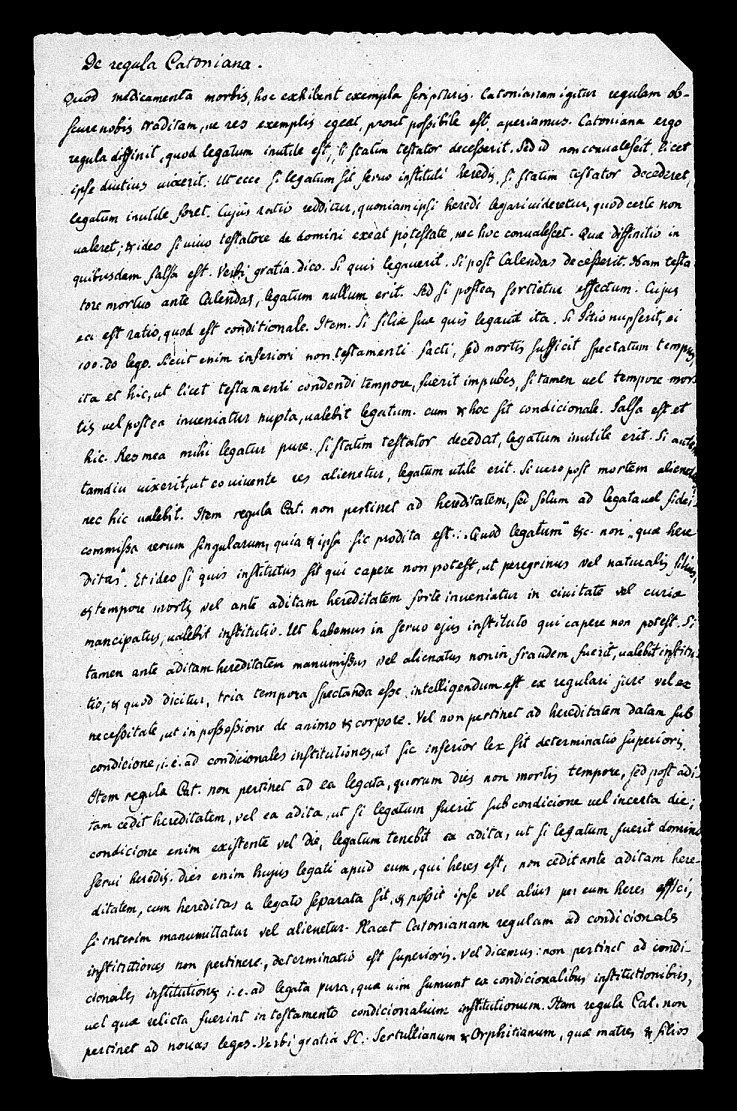 De regula Catoniana.
Quod medicamenta morbis, hoc exhibent exempla scripturis. Catonianam igitur regulam ob-
scure nobis traditam, ne res exemplis egeat, prout possibile est, aperiamus. Catoniana ergo
regula diffinit, quod legatum inutile est, si statim testator decesserit. Sed id non convalescit, licet
ipse diutius vixerit. Ut ecce si legatum sit servo instituti heredis, si statim testator decederet,
legatum inutile foret. Cujus ratio redditur, quoniam ipsi heredi legari videretur, quod certe non
valeret; & ideo si vivo testatore de domini exeat potestate, nec hoc convalescet. Quæ diffinitio in
quibusdam falsa est. Verbi gratia. Dico. Si quis legaverit. Si post Calendas decesserit. Nam testa-
tore mortuo ante Calendas, legatum nullum erit. Sed si postea, sortietur effectum. Cujus
ea est ratio, quod est conditionale. Item. Si filiæ suæ quis legavit ita. Si Titio nupserit, ei
100. do lego. Sicut enim inferiori non testamenti facti, sed mortis sufficit spectatum tempus,
ita et hic, ut licet testamenti condendi tempore, fuerit impubes, si tamen vel tempore mor-
tis vel postea inveniatur nupta, valebit legatum. cum & hoc sit condicionale. Falsa est et
hic. Res mea mihi legatur pure. Si statim testator decedat, legatum inutile erit. Si autem
tamdiu vixerit, ut eo vivente res alienetur, legatum utile erit. Si vero post mortem alienetur
nec hic valebit. Item regula Cat. non pertinet ad hereditatem, sed solum ad legata vel fidei-
commissa rerum singularum, quia & ipsa sic prodita est: „Quod legatum“ &c. non „quæ here
ditas“. Et ideo si quis institutus sit qui capere non potest, ut peregrinus vel naturalis filius,
& tempore mortis vel ante aditam hereditatem forte inveniatur in civitate vel curiæ
mancipatus, valebit institutio. Ut habemus in servo ejus instituto qui capere non potest. Si
tamen ante aditam hereditatem manumissus vel alienatus non in fraudem fuerit, valebit institu-
tio; & quod dicitur, tria tempora spectanda esse, intelligendum est ex regulari jure vel ex
necessitate, ut in possessione de animo & corpore. Vel non pertinet ad hereditatem datam sub
condicione, i. e. ad condicionales institutiones, ut sic inferior lex sit determinatio superioris.
Item regula Cat. non pertinet ad ea legata, quorum dies non mortis tempore, sed post adi-
tam cedit hereditatem, vel ea adita, ut si legatum fuerit sub condicione vel incerta die;
condicione enim existente vel die, legatum tenebit ea adita, ut si legatum fuerit domino
servi heredis. Dies enim hujus legati apud eum, qui heres est, non cedit ante aditam here-
ditatem, cum hereditas a legato separata sit, & possit ipse vel alius per eum heres effici,
si interim manumittatur vel alienetur. Placet Catonianam regulam ad condicionales
institutiones non pertinere, determinatio est superioris. vel dicemus: non pertinet ad condi-
cionales institutiones i. e. ad legata pura, quæ vim sumunt ex condicionalibus institutionibus,
vel quæ relicta fuerint in testamento condicionalium institutionum. Item regula Cat. non
pertinet ad novas leges. Verbi gratia SC. Tertullianum & Orphitianum, quæ matres & filios